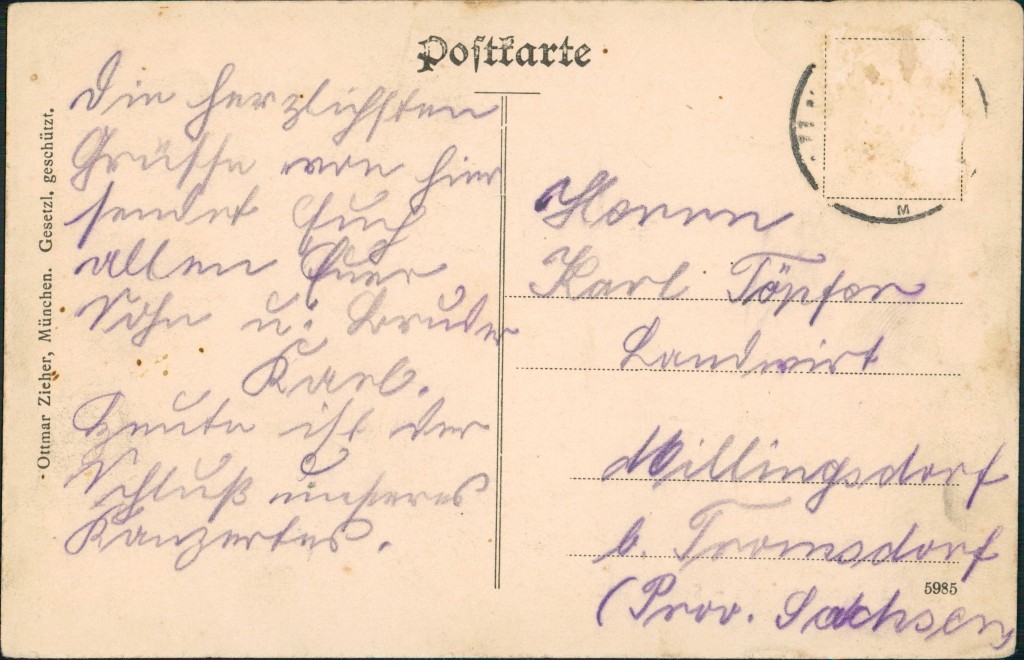 Postkarte
Die herzlichsten
Grüsse von hier
sendet Euch
allen Euer
Sohn u. Bruder
Karl.
Heute ist der
Schluß unseres
Konzertes.
Herrn
Karl Töpfer
Landwirt
Millingsdorf
b. Tromsdorf
(Prov. Sachsen
5985
Ottmar Zieher, München. Gesetzl. geschützt.
M